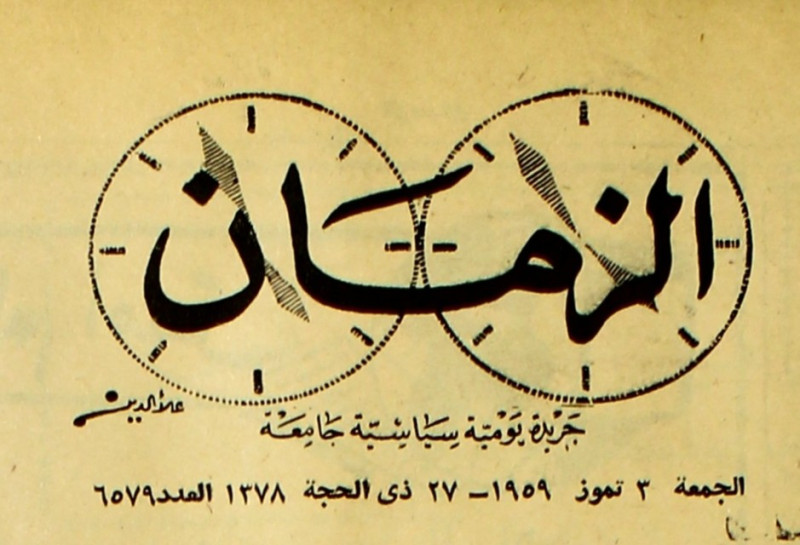 الزمان
علاء الدين
جَريْدة يَوْميّة سِيَاسِيّة جَامِعَة
الجمعة ٣ تموز ١٩٥٩ – ٢٧ ذى الحجة ١٣٧٨ العدد ٦٥٧٩